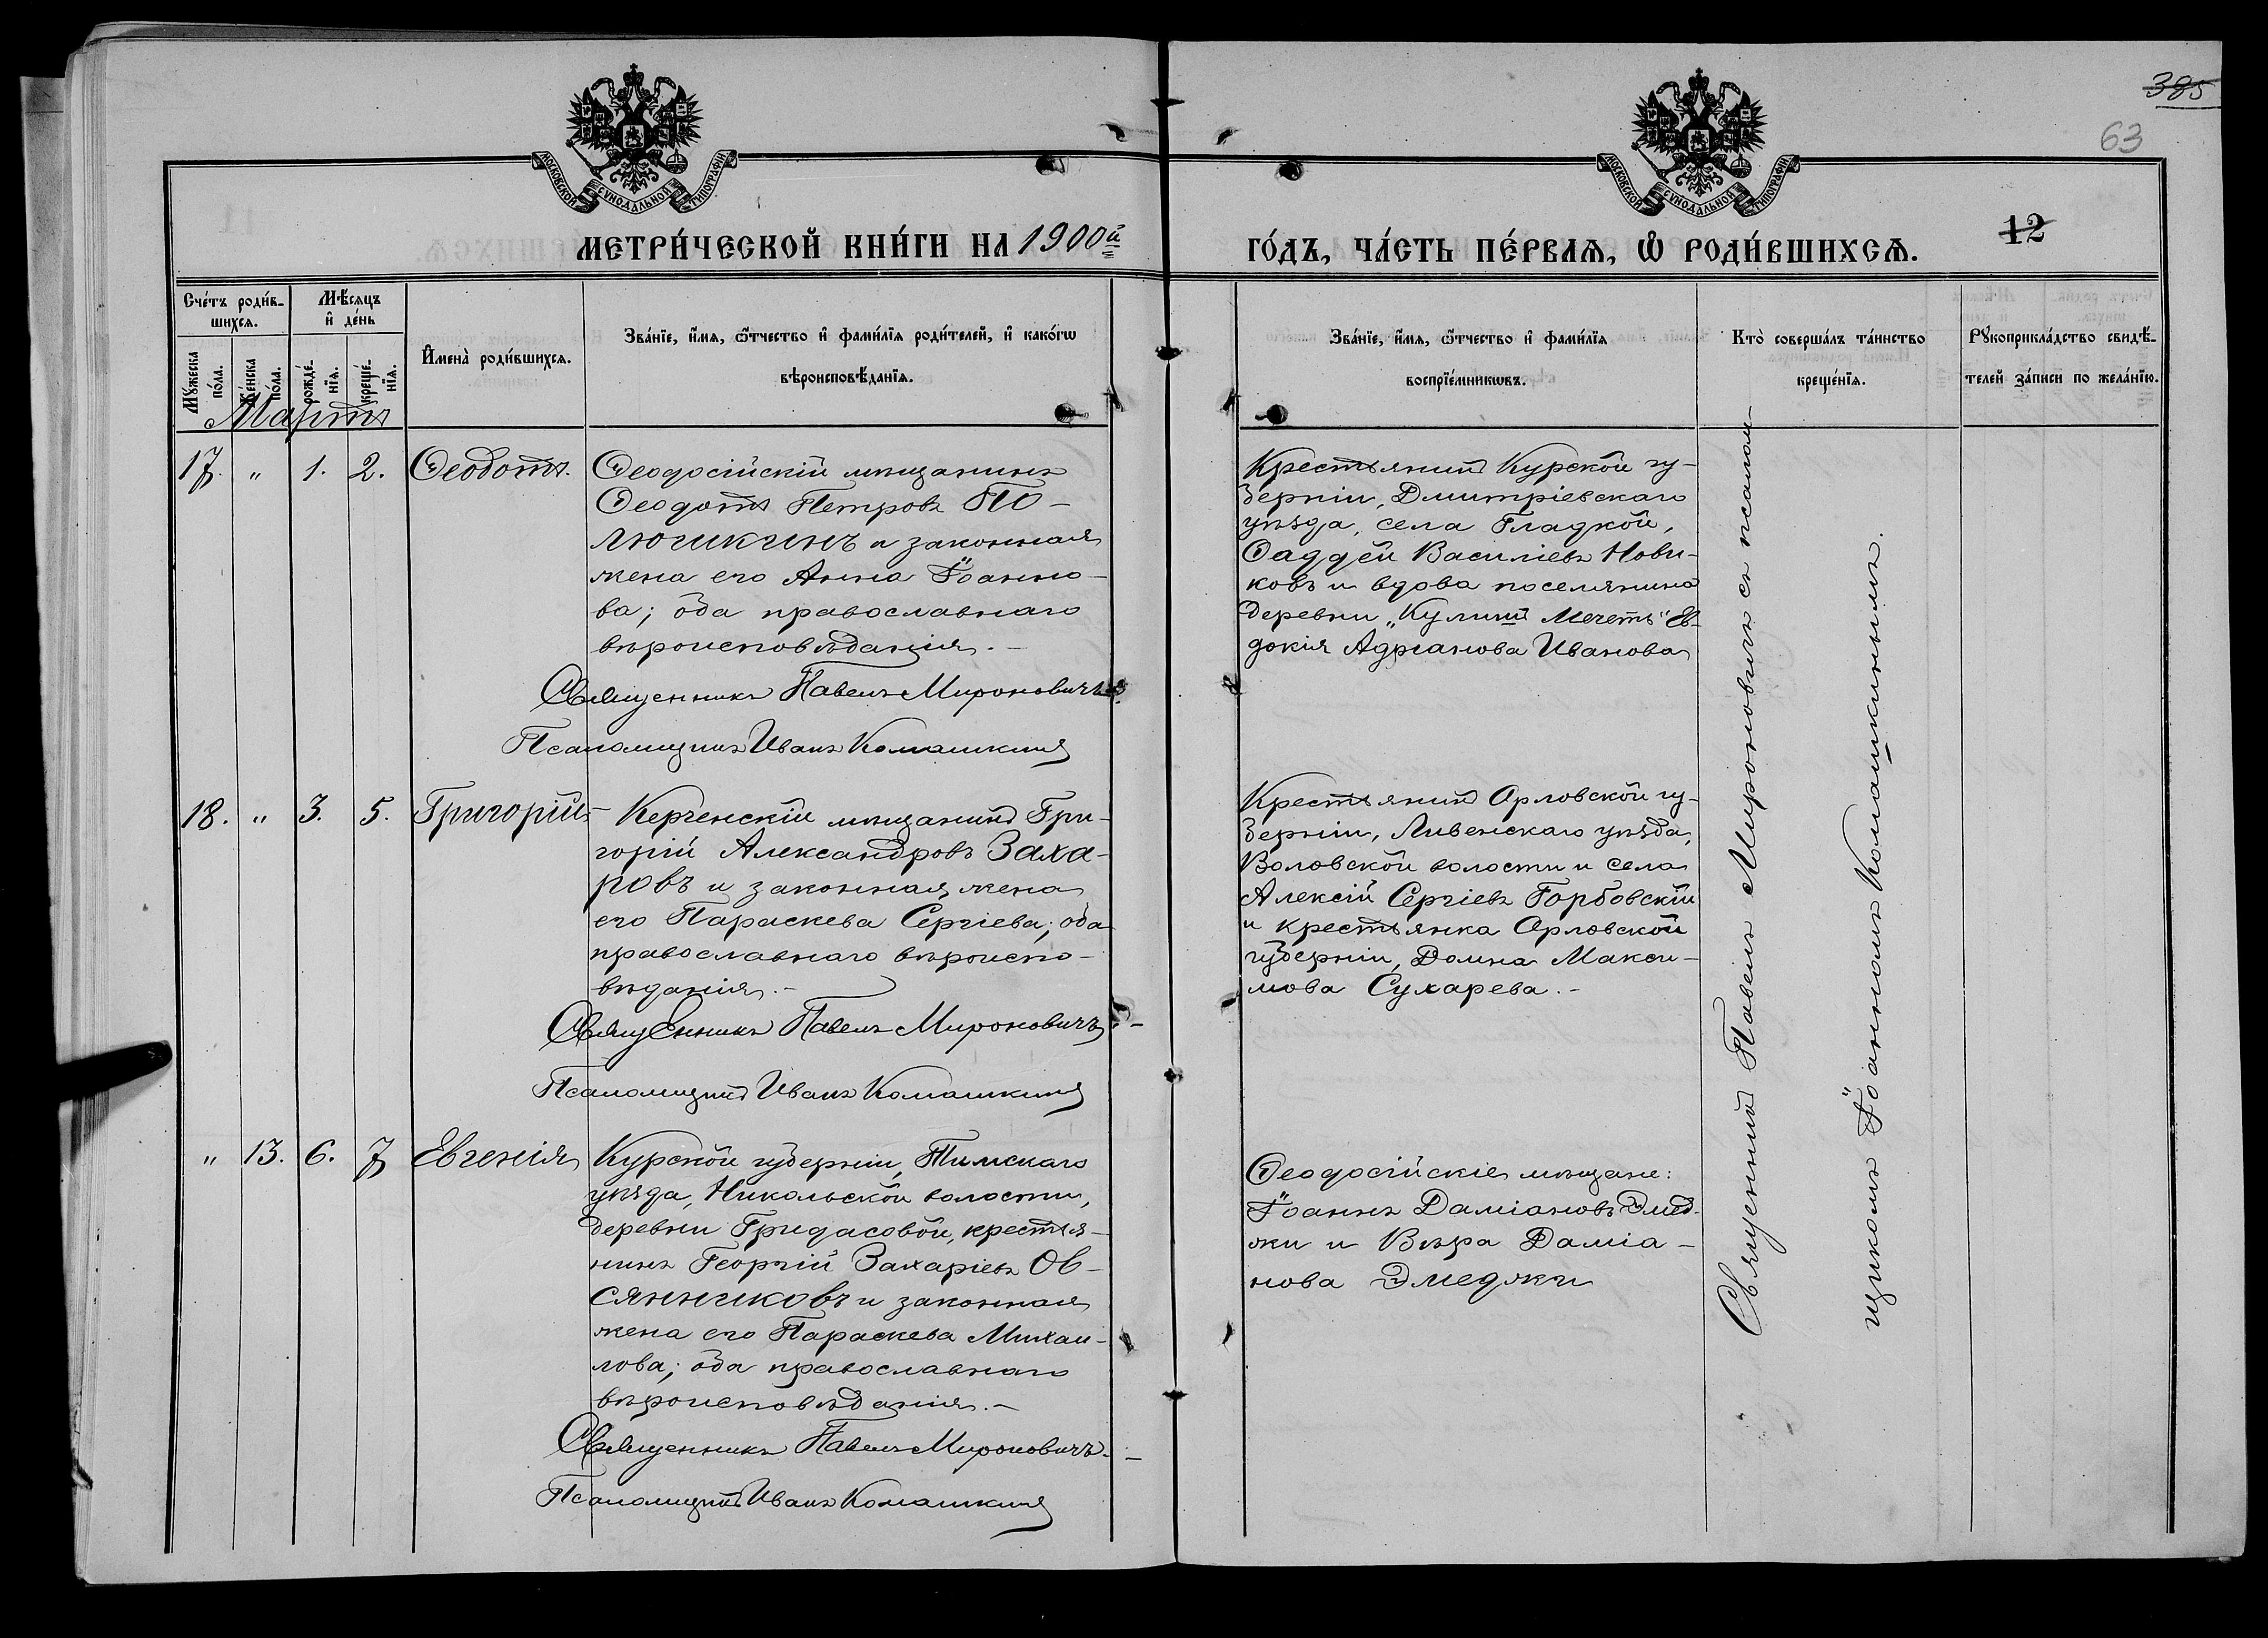 385
63
МОСКОВСКОЙ СѴНОДАЛЬНОЙ ТИПОГРАФІИ
МОСКОВСКОЙ СѴНОДАЛЬНОЙ ТИПОГРАФІИ
МЕТРИ́ЧЕСКОЙ КНИ́ГИ НА 1900й
ГО́ДЪ, ЧА́СТЬ ПЕ́РВАѦ, Ѽ РОДИ́ВШИХСѦ.
12
Сче́тъ роди́в-
шихсѧ.
Мѣ́сѧцъ
и҆ де́нь
Мꙋ́жеска
по́ла.
Же́нска
по́ла.
рожде́-
нїѧ.
креще́-
нїѧ.
И҆мена̀ роди́вшихсѧ.
Зва́нїе, и҆́мѧ, ѻ҆́тчество и҆ фами́лїѧ роди́телей, и҆ како́гѡ
вѣроисповѣ́данїѧ.
Зва́нїе, и҆́мѧ, ѻ҆́тчество и҆ фами́лїѧ
воспрїе́мникѡвъ.
Кто̀ соверша́лъ та́инство
креще́нїѧ.
Рꙋкоприкла́дство свидѣ́-
телей за́писи по жела́нїю.
Мартъ
17. " 1. 2. Ѳеодотъ.
Ѳеодосійскій мѣщанинъ
Ѳеодотъ Петровъ По-
люшкинъ и законная
жена его Анна Іоанно-
ва; оба православнаго
вѣроисповѣданія.-
Священникъ Павелъ Мироновичъ.
Псаломщикъ Иванъ Комашкинъ
Крестьянинъ Курской гу-
берніи, Дмитріевскаго
уѣзда, села Гладкой,
Ѳаддей Василіевъ Нови-
ковъ и вдова поселянина
деревни „Кулишъ Мечеть" Ев-
докія Адріанова Иванова
18. " 3. 5. Григорій
Керченскій мѣщанинъ Гри-
горій Александровъ Заха-
ровъ и законная жена
его Параскева Сергіева; оба
православнаго вѣроиспо-
вѣданія.-
Священникъ Павелъ Мироновичъ.-
Псаломщикъ Иванъ Комашкинъ
Крестьянинъ Орловской гу-
берніи, Ливенскаго уѣзда,
Воловской волости и села
Алексій Сергіевъ Горбовскій
и крестьянка Орловской
губерніи, Домна Макси-
мова Сухарева.-
" 13. 6. 7 Евгенія
Курской губерніи, Тимскаго
уѣзда, Никольской волости,
деревни Гридасовой, крестья-
нинъ Георгій Захаріевъ Ов-
сянниковъ и законная
жена его Параскева Михаи-
лова; оба православнаго
вѣроисповѣданія.-
Священникъ Павелъ Мироновичъ.-
Псаломщикъ Иванъ Комашкинъ
Ѳеодосійскіе мѣщане:
Іоаннъ Даміановъ Эмед-
жи и Вѣра Даміа-
нова Эмеджи
Священникъ Павелъ Мироновичъ съ псалом-
щикомъ Іоанномъ Комашкинымъ.